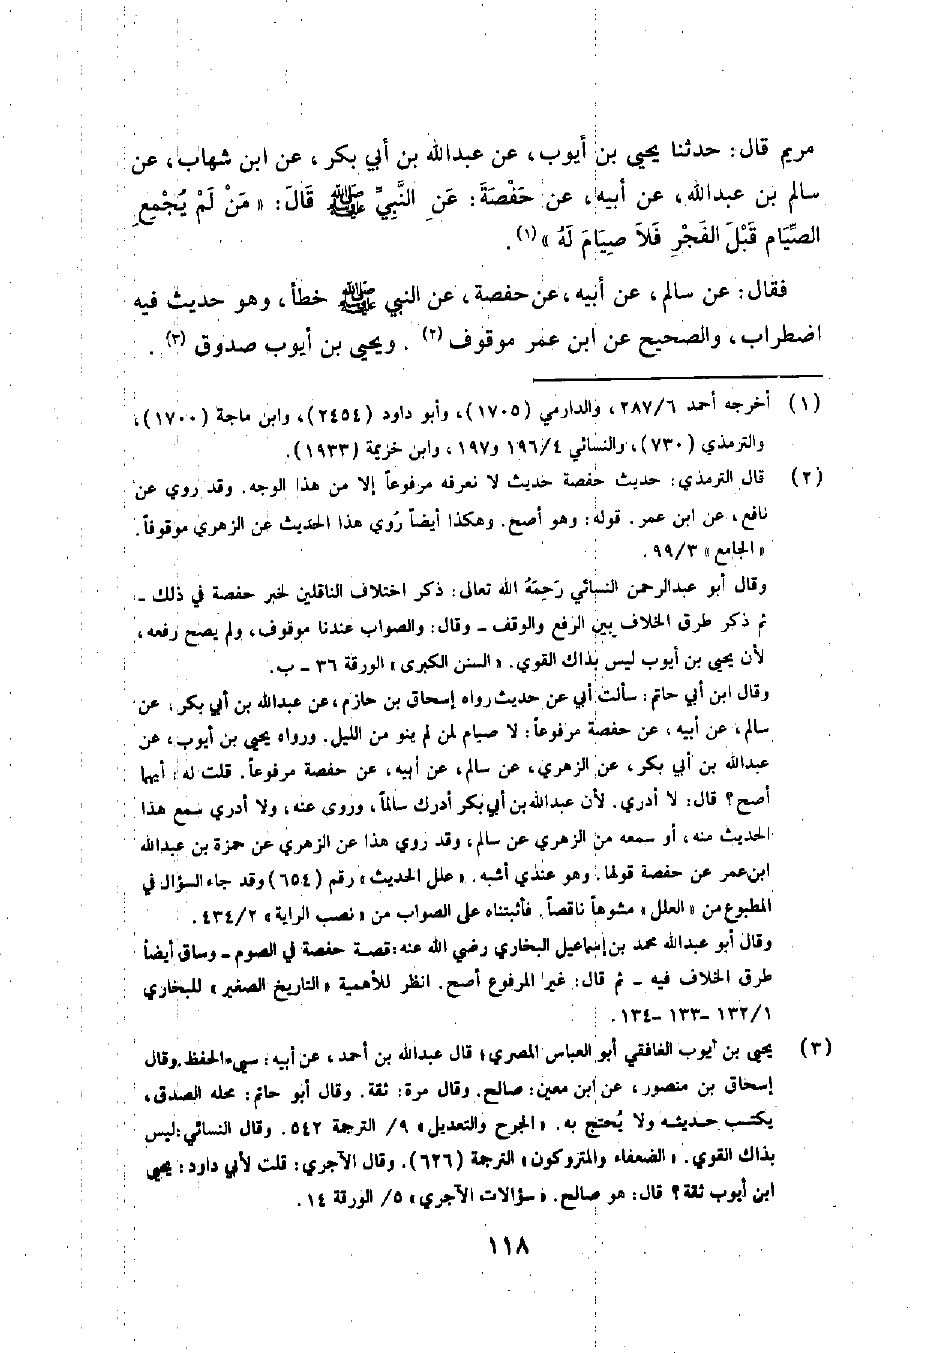 مريم قال: حدثنا يحيى بن أيوب، عن عبدالله بن أبي بكر، عن ابن شهاب، عن
سالم بن عبدالله، عن أبيه، عن حَفْصَةَ: عَنِ النَّبِيِّ ﷺ قَالَ: « مَنْ لَمْ يُجْمِعِ
الصِّيَام قَبْلَ الفَجْرِ فَلاَ صِيَامَ لَهُ » (١).
فقال: عن سالم، عن أبيه، عن حفصة، عن النبي ﷺ خطأ، وهو حديث فيه
اضطراب، والصحيح عن ابن عمر موقوف (٢). ويحيى بن أيوب صدوق (٣).
(١) أخرجه أحمد ٢٨٧/٦، والدارمي (١٧٠٥)، وأبو داود (٢٤٥٤)، وابن ماجة (١٧٠٠)،
والترمذي (٧٣٠)، والنسائي ١٩٦/٤ و١٩٧، وابن خزيمة (١٩٣٣).
(٢) قال الترمذي: حديث حفصة حديث لا نعرفه مرفوعاً إلا من هذا الوجه. وقد روي عن
نافع، عن ابن عمر. قوله: وهو أصح. وهكذا أيضاً رُوي هذا الحديث عن الزهري موقوفاً.
« الجامع » ٩٩/٣.
وقال أبو عبدالرحمن النسائي رَحِمَهُ الله تعالى: ذكر اختلاف الناقلين لخبر حفصة في ذلك ـ
ثم ذكر طرق الخلاف بين الرفع والوقف ـ وقال: والصواب عندنا موقوف، ولم يصح رفعه،
لأن يحيى بن أيوب ليس بذاك القوي. « السنن الكبرى » الورقة ٣٦ - ب.
وقال ابن أبي حاتم: سألت أبي عن حديث رواه إسحاق بن حازم، عن عبدالله بن أبي بكر، عن
سالم، عن أبيه، عن حفصة مرفوعاً: لا صيام لمن لم ينو من الليل. ورواه يحيى بن أيوب، عن
عبدالله بن أبي بكر، عن الزهري، عن سالم، عن أبيه، عن حفصة مرفوعاً. قلت له: أيهما
أصح؟ قال: لا أدري. لأن عبدالله بن أبي بكر أدرك سالماً، وروى عنه، ولا أدري سمع هذا
الحديث منه، أو سمعه من الزهري عن سالم، وقد روي هذا عن الزهري عن حمزة بن عبدالله
ابن عمر عن حفصة قولها. وهو عندي أشبه. « علل الحديث » رقم (٦٥٤) وقد جاء السؤال في
المطبوع من « العلل » مشوهاً ناقصاً. فأثبتناه على الصواب من « نصب الراية » ٤٣٤/٢.
وقال أبو عبدالله محمد بن إسماعيل البخاري رضي الله عنه: قصة حفصة في الصوم ـ وساق أيضاً
طرق الخلاف فيه ـ ثم قال: غير المرفوع أصح. انظر للأهمية « التاريخ الصغير » للبخاري
١٣٢/١ -١٣٣ -١٣٤.
(٣) يحيى بن أيوب الغافقي أبو العباس المصري؛ قال عبدالله بن أحمد، عن أبيه: سيىء الحفظ. وقال
إسحاق بن منصور، عن ابن معين: صالح. وقال مرة: ثقة. وقال أبو حاتم: محله الصدق،
يكتب حديثه ولا يُحتج به. « الجرح والتعديل » ٩/ الترجمة ٥٤٢. وقال النسائي: ليس
بذاك القوي. « الضعفاء والمتروكون » الترجمة (٦٢٦). وقال الآجري: قلت لأبي داود: يحيى
ابن أيوب ثقة؟ قال: هو صالح. « سؤالات الآجري » ٥/ الورقة ١٤.
١١٨